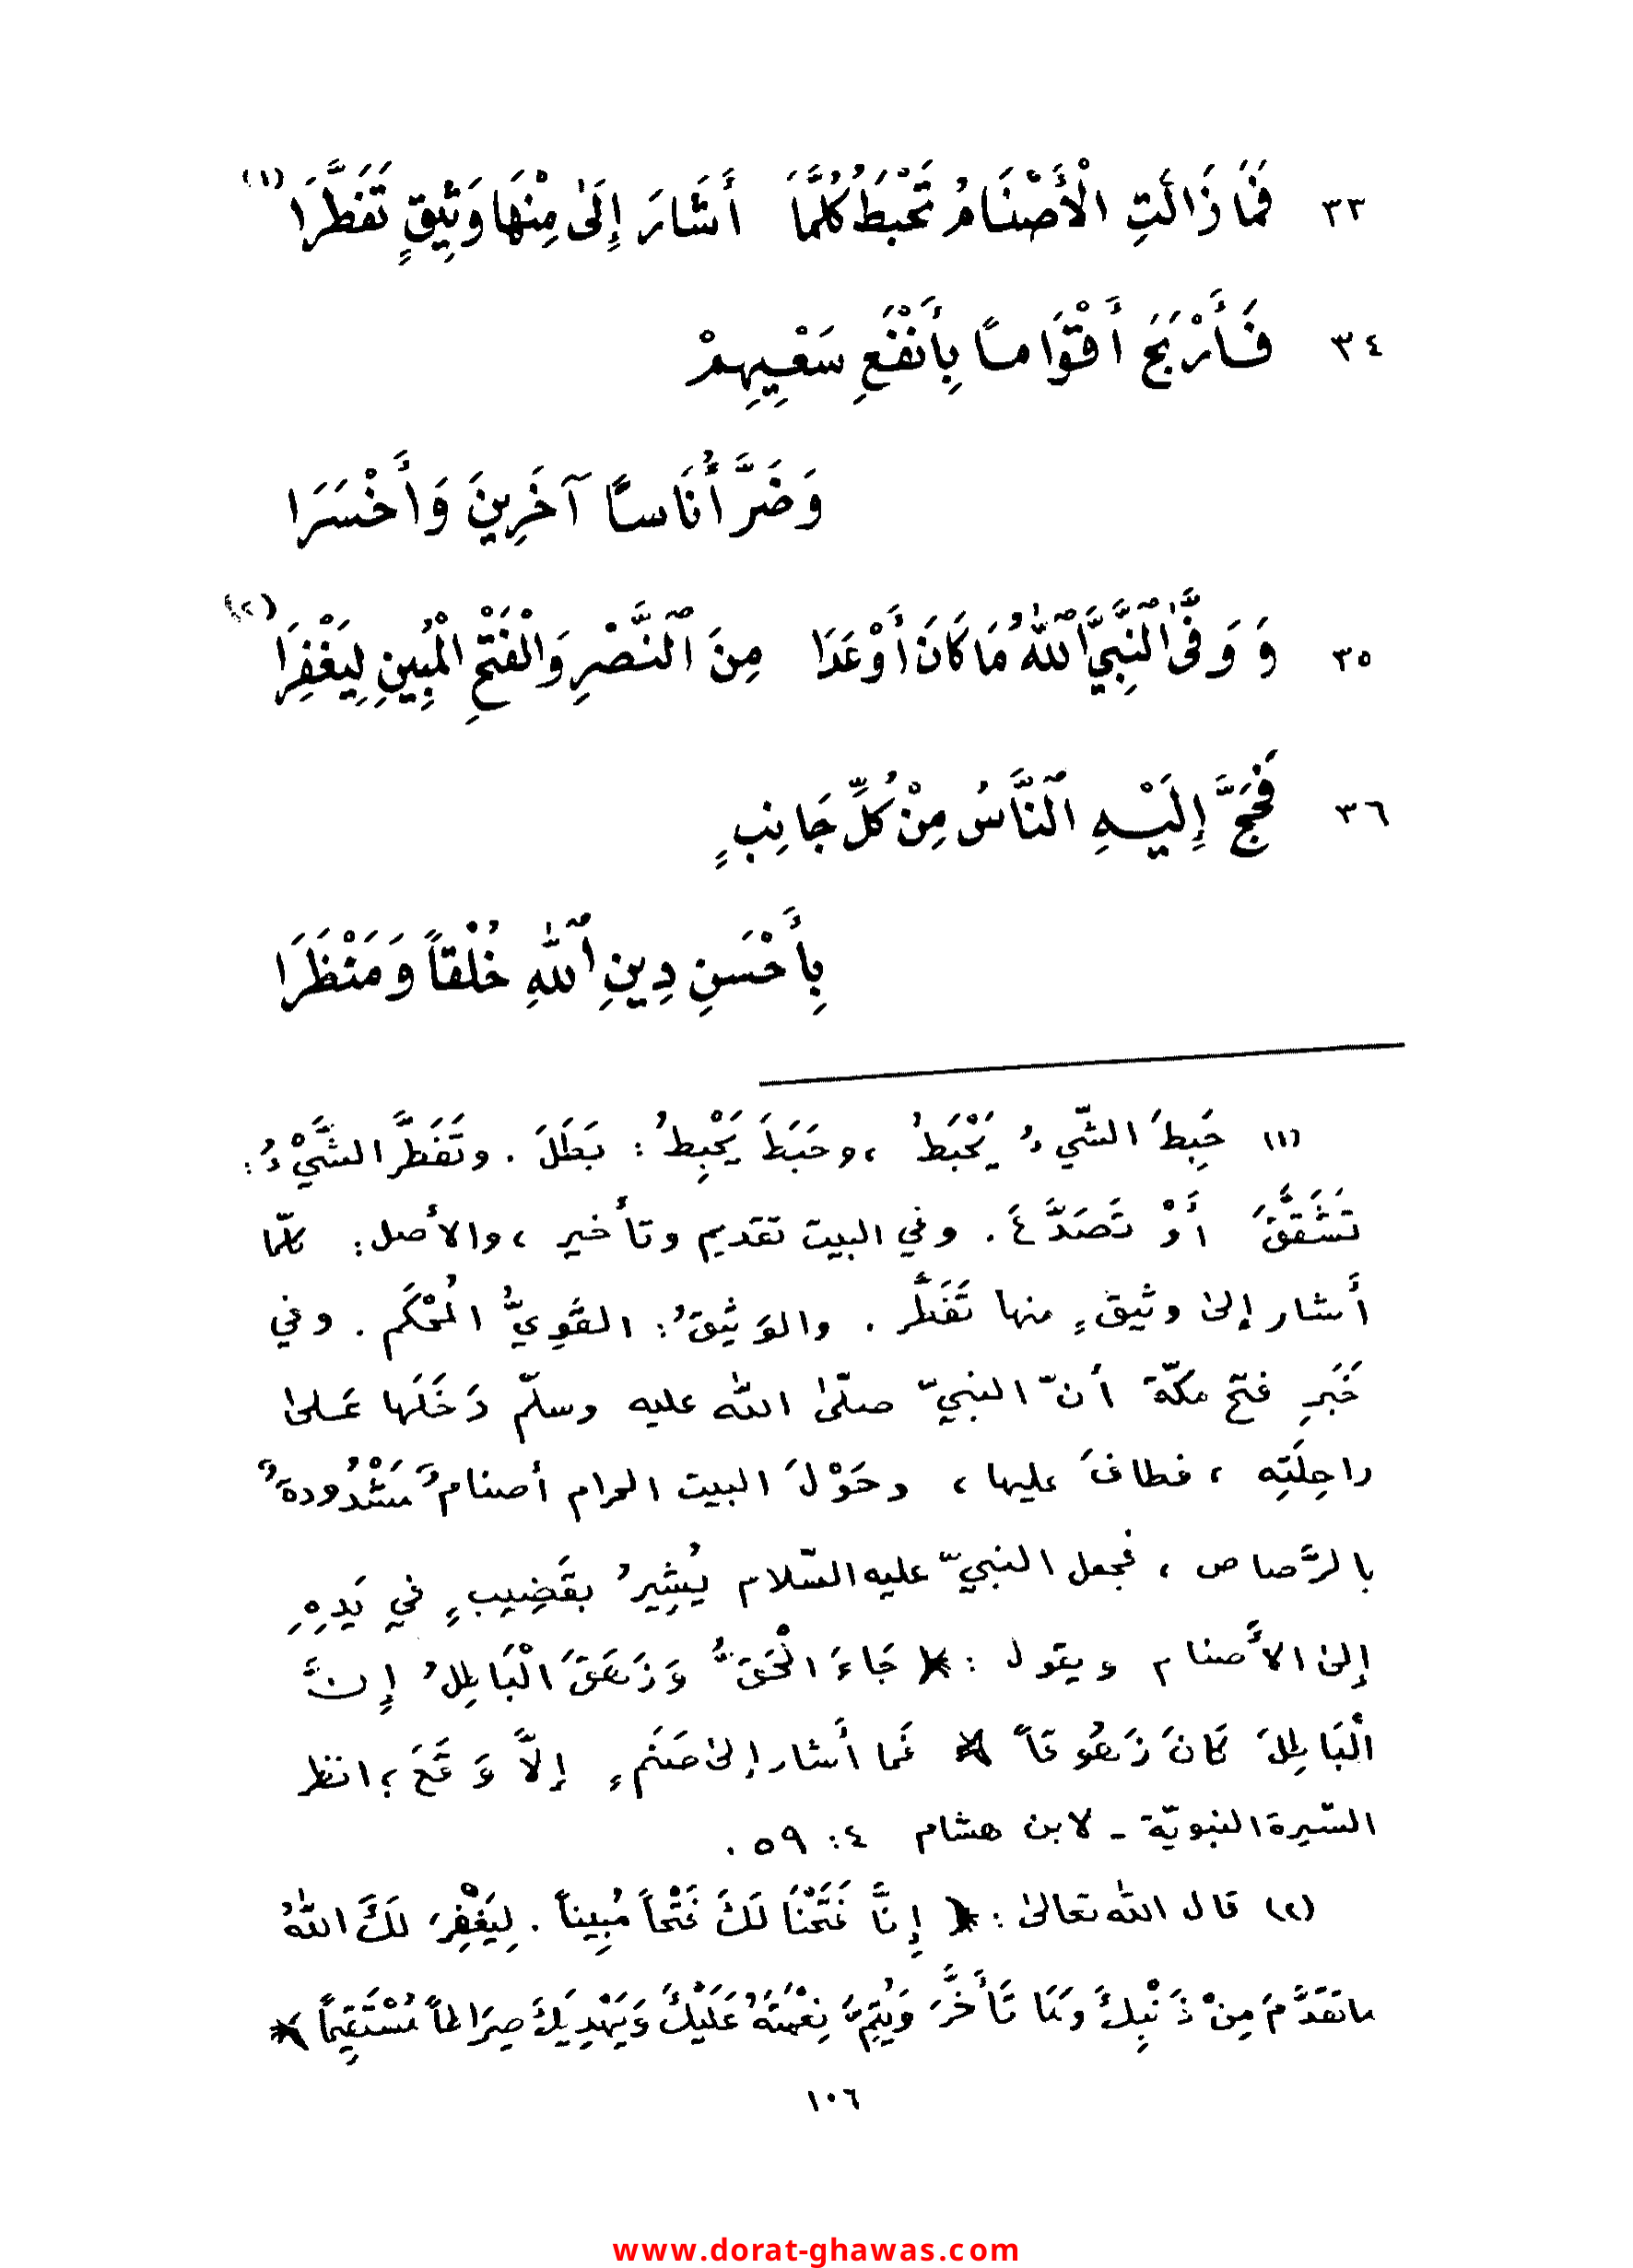 ٣٣ فَمَا زَالَتِ الْأَصْنَامُ تَحْبَطُ كُلَّمَا أَشَارَ إِلَىٰ مِنْهَا وَثِيقٍ تَفَطَّرَا (١)
٣٤ فَأَرْبَحَ أَقْوَامًا بِأَنْفَعِ سَعْيِهِمْ
وَضَرَّ أُنَاسًا آخَرِينَ وَأَخْسَرَا
٣٥ وَوَفَّى ٱلنَّبِيَّ ٱللّٰهُ مَا كَانَ أَوْعَدَا مِنَ ٱلنَّصْرِ وَالْفَتْحِ الْمُبِينِ لِيَغْفِرَا (٢)
٣٦ فَحَجَّ إِلَيْهِ ٱلنَّاسُ مِنْ كُلِّ جَانِبٍ
بِأَحْسَنِ دِينِ ٱللّٰهِ خُلْقاً وَمَنْظَرَا
(١) حَبِطَ الشّيءُ يَحْبَطُ ، وحَبَطَ يَحْبِطُ : بَطَلَ . وتَفَطَّرَ الشَّيْءُ :
تَشَقَّقَ أَوْ تَصَدَّعَ . وفي البيت تقديم وتأخير ، والأصل : كلّما
أَشار إلىٰ وثيقٍ منها تَفَطَّر . والوَثِيقُ : القَوِيُّ المُحْكَم . وفي
خَبَرِ فتح مكّة أنّ النبيّ صلّىٰ الله عليه وسلّم دَخَلَها عَلىٰ
راحِلَتِه ، فطافَ عليها ، وحَوْلَ البيت الحرام أصنامٌ مَشْدُودةٌ
بالرَّصاص ، فجعل النبيّ عليه السّلام يُشِيرُ بقَضِيبٍ في يَدِهِ
إلىٰ الأَصنام ويقول : ﴿ جَاءَ الْحَقُّ وَزَهَقَ الْبَاطِلُ إِنَّ
الْبَاطِلَ كَانَ زَهُوقاً ﴾ فَما أَشار إلىٰ صَنَمٍ إلاَّ وَقَعَ ؛ انظر
السّيرة النبويّة - لابن هشام ٤ : ٥٩ .
(٢) قال الله تعالىٰ : ﴿ إِنَّا فَتَحْنَا لَكَ فَتْحاً مُبِيناً . لِيَغْفِرَ لَكَ اللهُ
مَا تَقَدَّمَ مِنْ ذَنْبِكَ وَمَا تَأَخَّرَ وَيُتِمَّ نِعْمَتَهُ عَلَيْكَ وَيَهْدِيَكَ صِرَاطاً مُسْتَقِيماً ﴾
١٠٦
www.dorat-ghawas.com